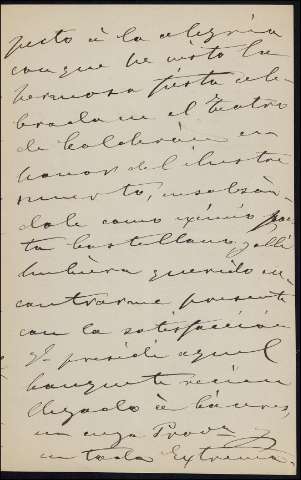 pecto à la alegria
con que he visto la
hermosa fiesta cele-
brada en el Teatro
de Calderón en
honor del ilustre
muerto, ensalzán-
dole como eximio poe-
ta Castellano, y allí
hubiera querido en-
contrarme presente
con la satisfacción
qe presidí aquel
banquete recien
llegado à Cáceres,
en cuya Prova y
en toda Extrema-